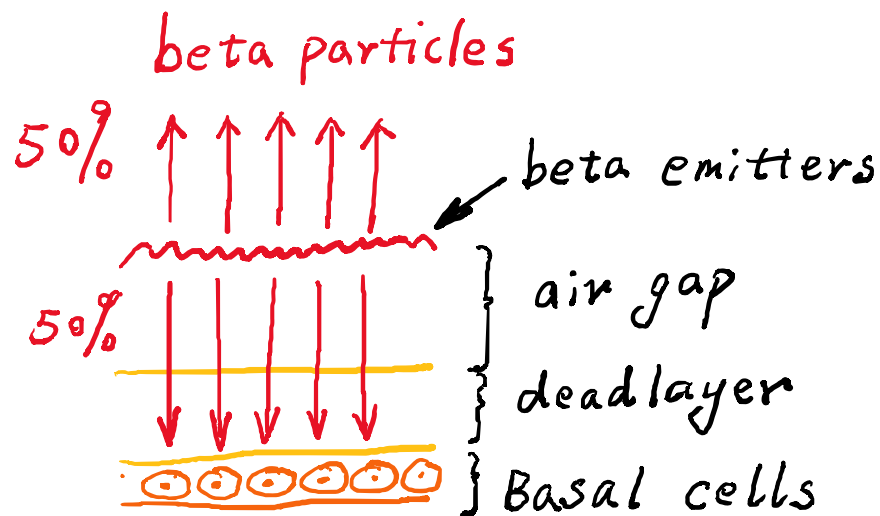 beta particles
50%
beta emitters
air gap
50%
deadlayer
Basal cells